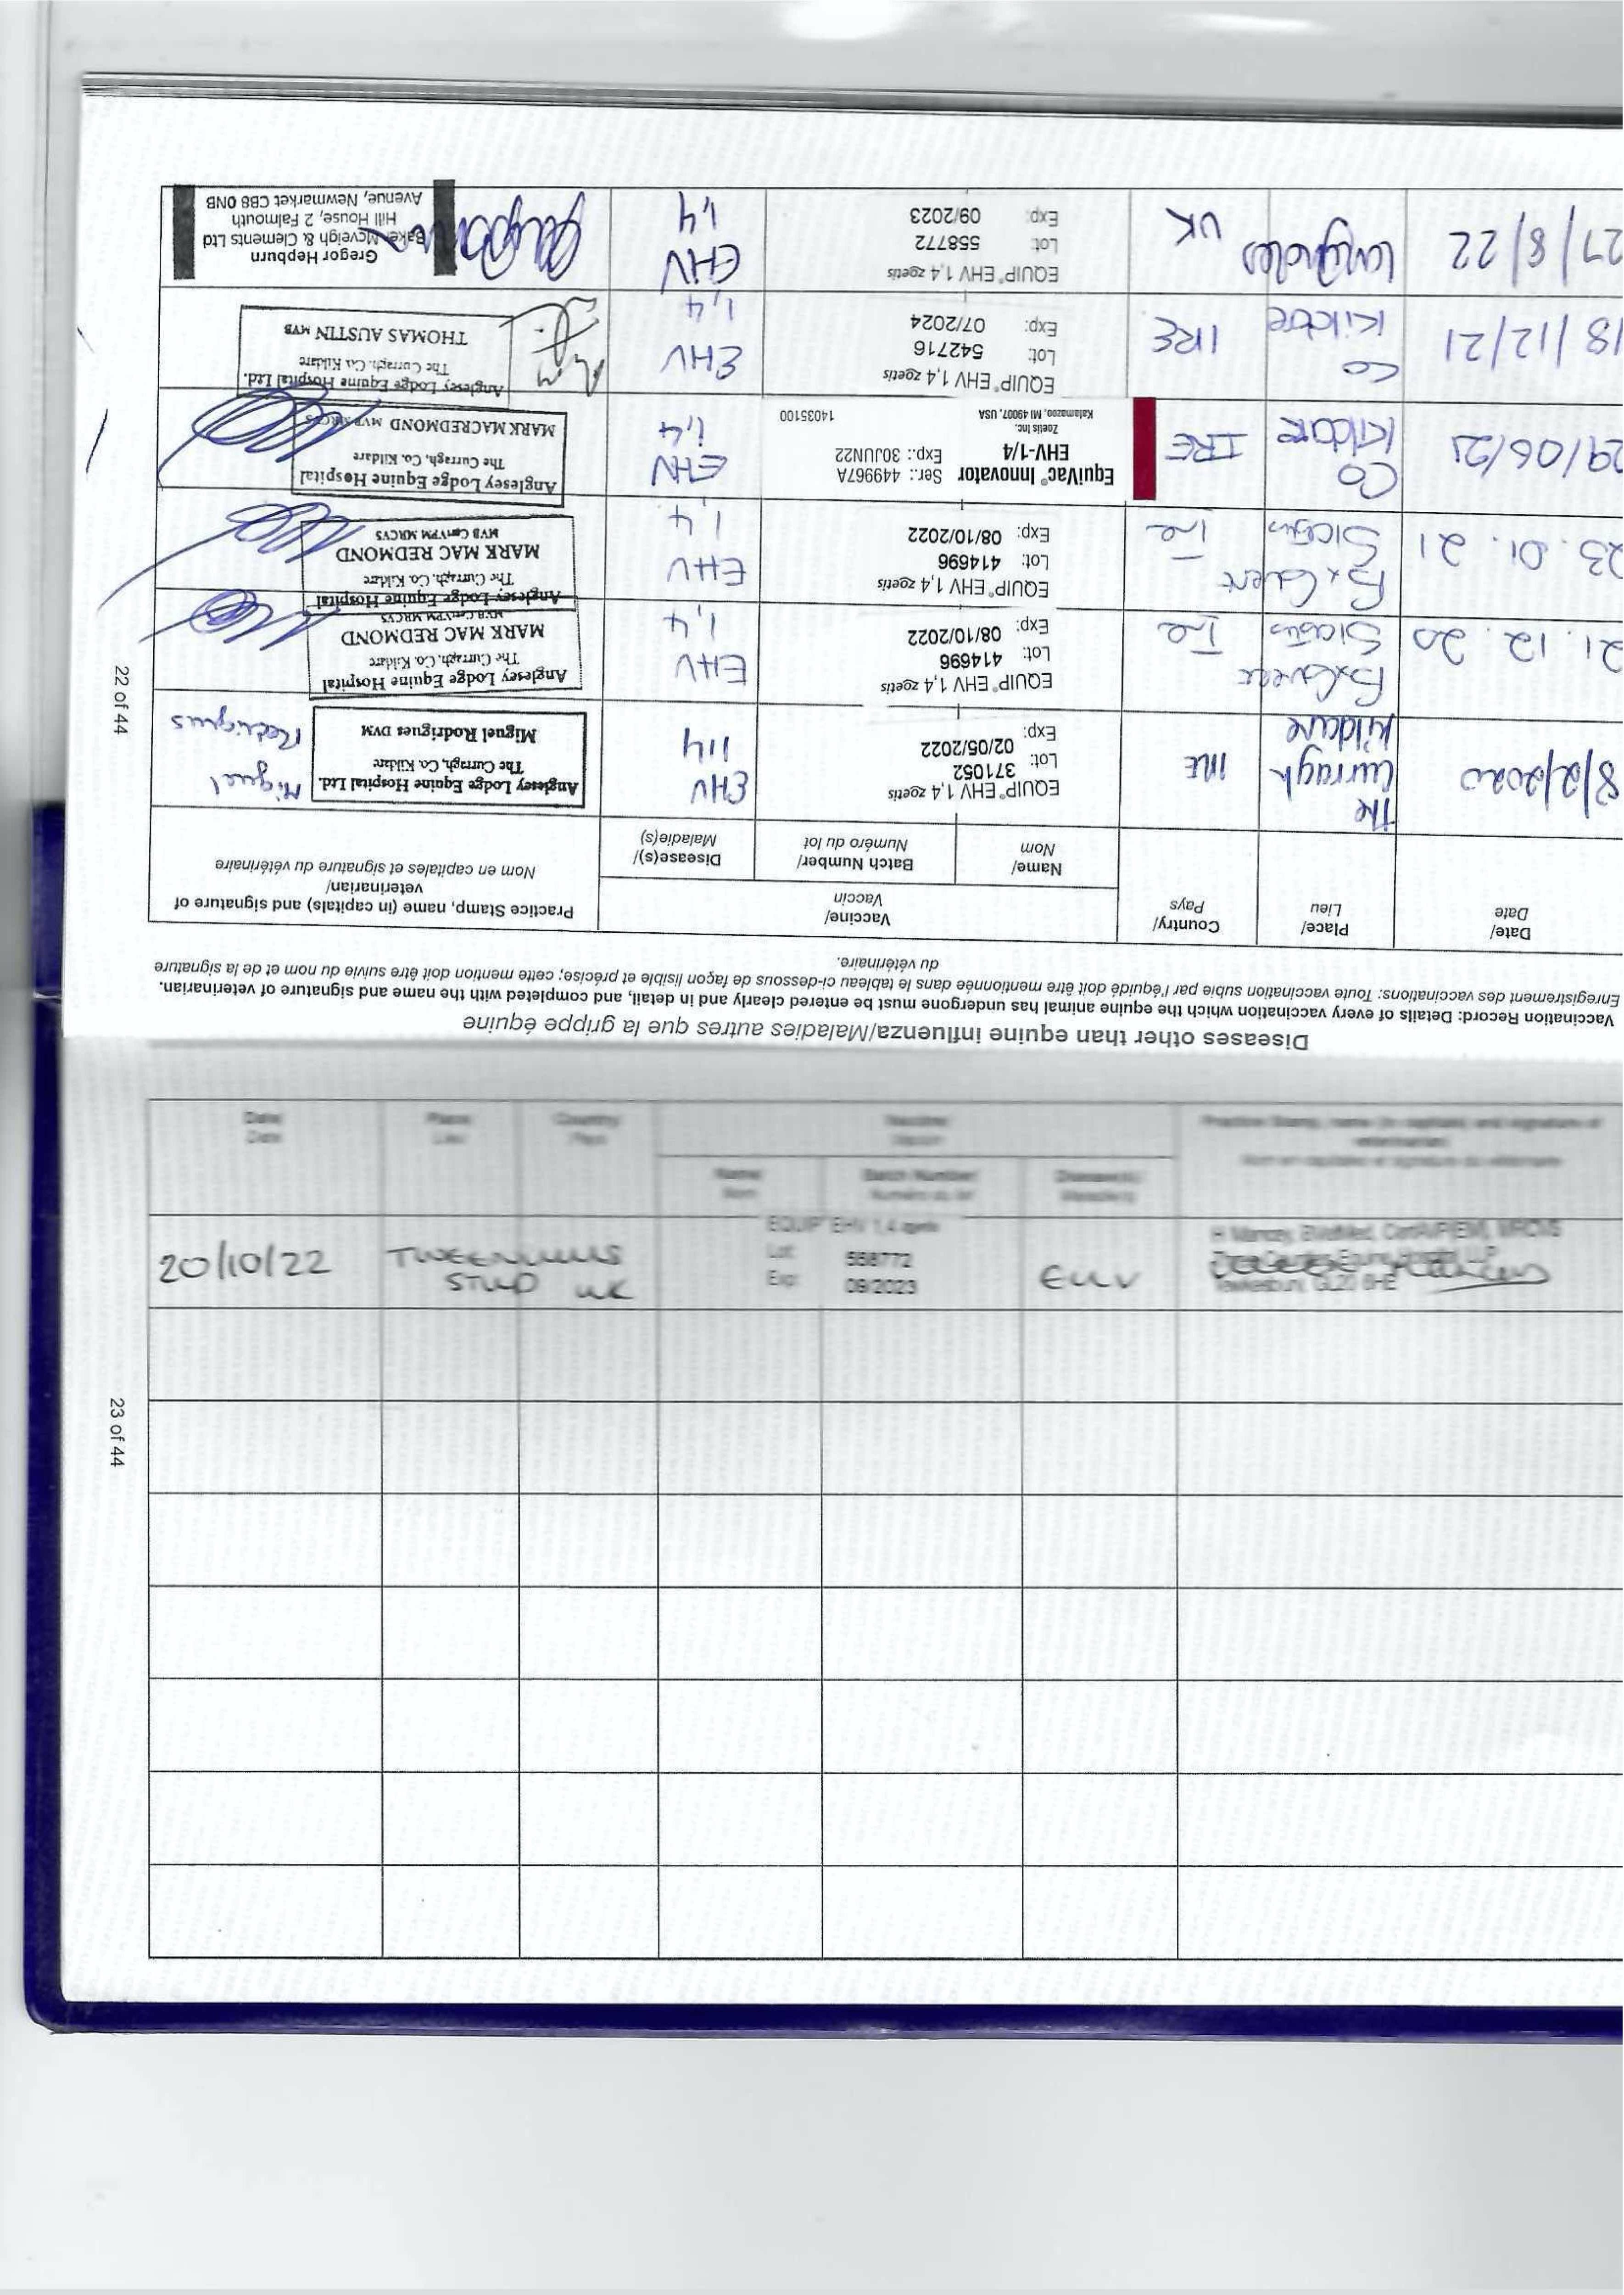 Diseases other than equine influenza/Maladies autres que la grippe équine
Vaccination Record: Details of every vaccination which the equine animal has undergone must be entered clearly and in detail, and completed with the name and signature of veterinarian.
Enregistrement des vaccinations: Toute vaccination subie par l'équidé doit être mentionnée dans le tableau ci-dessous de façon lisible et précise; cette mention doit être suivie du nom et de la signature
du vétérinaire.
Date/
Date
Place/
Lieu
Country/
Pays
Vaccine/
Vaccin
Name/
Nom
Batch Number/
Numéro du lot
Disease(s)/
Maladie(s)
Practice Stamp, name (in capitals) and signature of
veterinarian/
Nom en capitales et signature du vétérinaire
8/2/2020
The
Curragh
Kildare
IRE
EQUIP® EHV 1,4 zoetis
Lot: 371052
Exp: 02/05/2022
EHV
1,4
Anglesey Lodge Equine Hospital Ltd.
The Curragh, Co. Kildare
Miguel Rodrigues DVM
Miguel
Rodrigues
21. 12. 20
Ire
EQUIP® EHV 1,4 zoetis
Lot: 414696
Exp: 08/10/2022
EHV
1,4
Anglesey Lodge Equine Hospital
The Curragh, Co. Kildare
MARK MAC REDMOND
MVB CertVPM MRCVS
23. 01. 21
Ire
EQUIP® EHV 1,4 zoetis
Lot: 414696
Exp: 08/10/2022
EHV
1,4
Anglesey Lodge Equine Hospital
The Curragh, Co. Kildare
MARK MAC REDMOND
MVB CertVPM MRCVS
29/06/21
Co
Kildare
IRE
EquiVac® Innovator
EHV-1/4
Zoetis Inc.
Kalamazoo, MI 49007, USA
Ser.: 449967A
Exp.: 30JUN22
14035100
EHV
1,4
Anglesey Lodge Equine Hospital
The Curragh, Co. Kildare
MARK MACREDMOND MVB MRCVS
18/12/21
Co
Kildare
IRE
EQUIP® EHV 1,4 zoetis
Lot: 542716
Exp: 07/2024
EHV
1,4
Anglesey Lodge Equine Hospital Ltd.
The Curragh, Co. Kildare
THOMAS AUSTIN MVB
27/8/22
UK
EQUIP® EHV 1,4 zoetis
Lot: 558772
Exp: 09/2023
EHV
1,4
Gregor Hepburn
Baker Mcveigh & Clements Ltd
Hill House, 2 Falmouth
Avenue, Newmarket CB8 0NB
22 of 44
Date/
Date
Place/
Lieu
Country/
Pays
Vaccine/
Vaccin
Name/
Nom
Batch Number/
Numéro du lot
Disease(s)/
Maladie(s)
Practice Stamp, name (in capitals) and signature of
veterinarian/
Nom en capitales et signature du vétérinaire
20/10/22
TWEENHILLS
STUD UK
EQUIP® EHV 1,4 zoetis
Lot: 558772
Exp: 09/2023
EHV
Three Counties Equine Hospital LLP
Tewkesbury, GL20
23 of 44